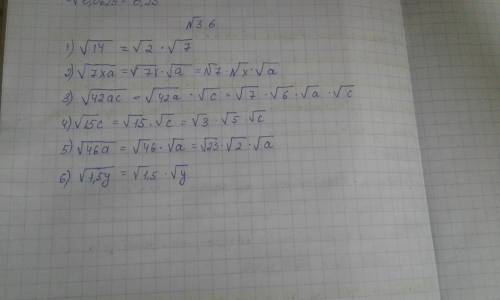 √0,0625 = 0,25
№3.6
1) √14 = √2 · √7
2) √7xa = √7x · √a = √7 · √x · √a
3) √42ac = √42a · √c = √7 · √6 · √a · √c
4) √15c = √15 · √c = √3 · √5 · √c
5) √46a = √46 · √a = √23 · √2 · √a
6) √1,5y = √1,5 · √y